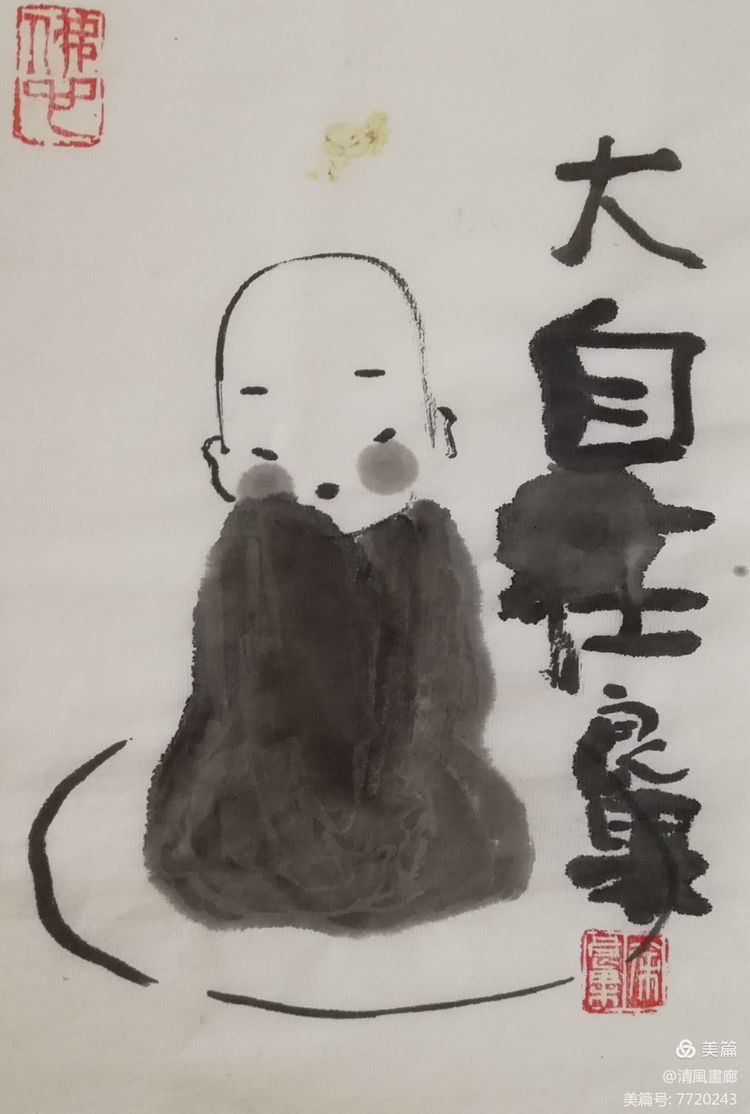 佛心
大自在
良果
美篇
@清風畫廊
美篇号: 7720243